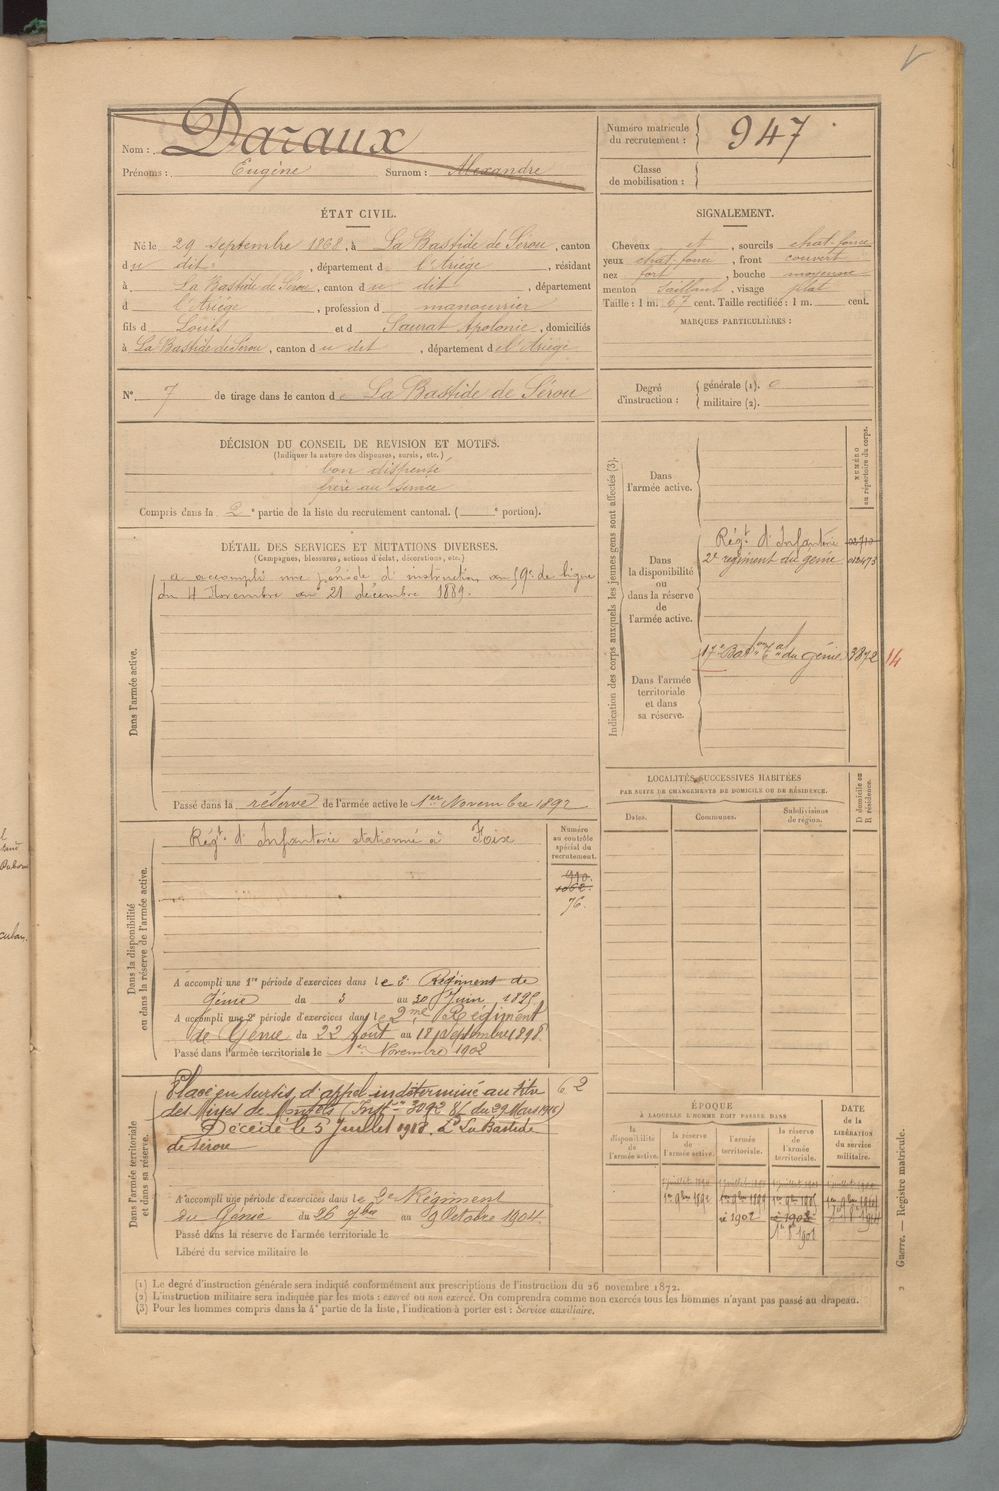 Nom : Daraux
Prénoms : Eugène Surnom : Alexandre
Numéro matricule du recrutement : 947
Classe de mobilisation :
ÉTAT CIVIL.
Né le 29 Septembre 1868, à La Bastide de Sérou, canton
du dit, département de l'Ariége, résidant
à La Bastide de Sérou, canton du dit, département
d l'Ariége, profession d manouvrier
fils d Louis et d Saurat Apolonie, domiciliés
à La Bastide de Sérou, canton du dit, département de l'Ariége
SIGNALEMENT.
Cheveux et, sourcils chat-foncé
yeux chat-foncé, front couvert
nez fort, bouche moyenne
menton saillant, visage plat
Taille : 1 m. 67 cent. Taille rectifiée : 1 m. cent.
MARQUES PARTICULIÈRES :
N° 7 de tirage dans le canton de La Bastide de Sérou
Degré d'instruction : générale (1). 0
militaire (2).
DÉCISION DU CONSEIL DE REVISION ET MOTIFS.
(Indiquer la nature des dispenses, sursis, etc.)
bon dispensé
frère au service
Compris dans la 2e partie de la liste du recrutement cantonal. ( e portion).
DÉTAIL DES SERVICES ET MUTATIONS DIVERSES.
(Campagnes, blessures, actions d'éclat, décorations, etc.)
Dans l'armée active.
a accompli une période d'instruction au 59e de ligne
du 4 Novembre au 21 décembre 1889.
Passé dans la réserve de l'armée active le 1er Novembre 1892
Indication des corps auxquels les jeunes gens sont affectés (3).
NUMÉRO au répertoire du corps.
Dans l'armée active.
Dans la disponibilité ou dans la réserve de l'armée active.
Régt d'Infanterie
2e régiment du génie 012473
Dans l'armée territoriale et dans sa réserve.
17e Baton Tal du génie 3872 14
LOCALITÉS SUCCESSIVES HABITÉES
PAR SUITE DE CHANGEMENTS DE DOMICILE OU DE RÉSIDENCE.
D domicile ou R résidence.
Dates. Communes. Subdivisions de région.
Dans la disponibilité ou dans la réserve de l'armée active.
Régt d'Infanterie stationné à Foix
Numéro au contrôle spécial du recrutement.
910.
1062.
76.
A accompli une 1re période d'exercices dans le 2e Régiment de
Génie du 3 au 30 Juin 1895
A accompli une 2e période d'exercices dans le 2me Régiment
de Génie du 22 Août au 18 Septembre 1898
Passé dans l'armée territoriale le 1er Novembre 1902
Dans l'armée territoriale et dans sa réserve.
Placé en sursis d'appel indéterminé au titre 62
des Mines de Montels (Instn 3092 8/ du 29 Mars 1915)
Décédé le 5 Juillet 1918. La Bastide
de Sérou
A accompli une période d'exercices dans le 2e Régiment
du Génie du 26 7bre au 9 Octobre 1904.
Passé dans la réserve de l'armée territoriale le
Libéré du service militaire le
ÉPOQUE
À LAQUELLE L'HOMME DOIT PASSER DANS
la disponibilité de l'armée active.
la réserve de l'armée active.
l'armée territoriale.
la réserve de l'armée territoriale.
DATE de la LIBÉRATION du service militaire.
1er 9bre 1892
1902
(1) Le degré d'instruction générale sera indiqué conformément aux prescriptions de l'instruction du 26 novembre 1872.
(2) L'instruction militaire sera indiquée par les mots : exercé ou non exercé. On comprendra comme non exercés tous les hommes n'ayant pas passé au drapeau.
(3) Pour les hommes compris dans la 4e partie de la liste, l'indication à porter est : Service auxiliaire.
Guerre. — Registre matricule.